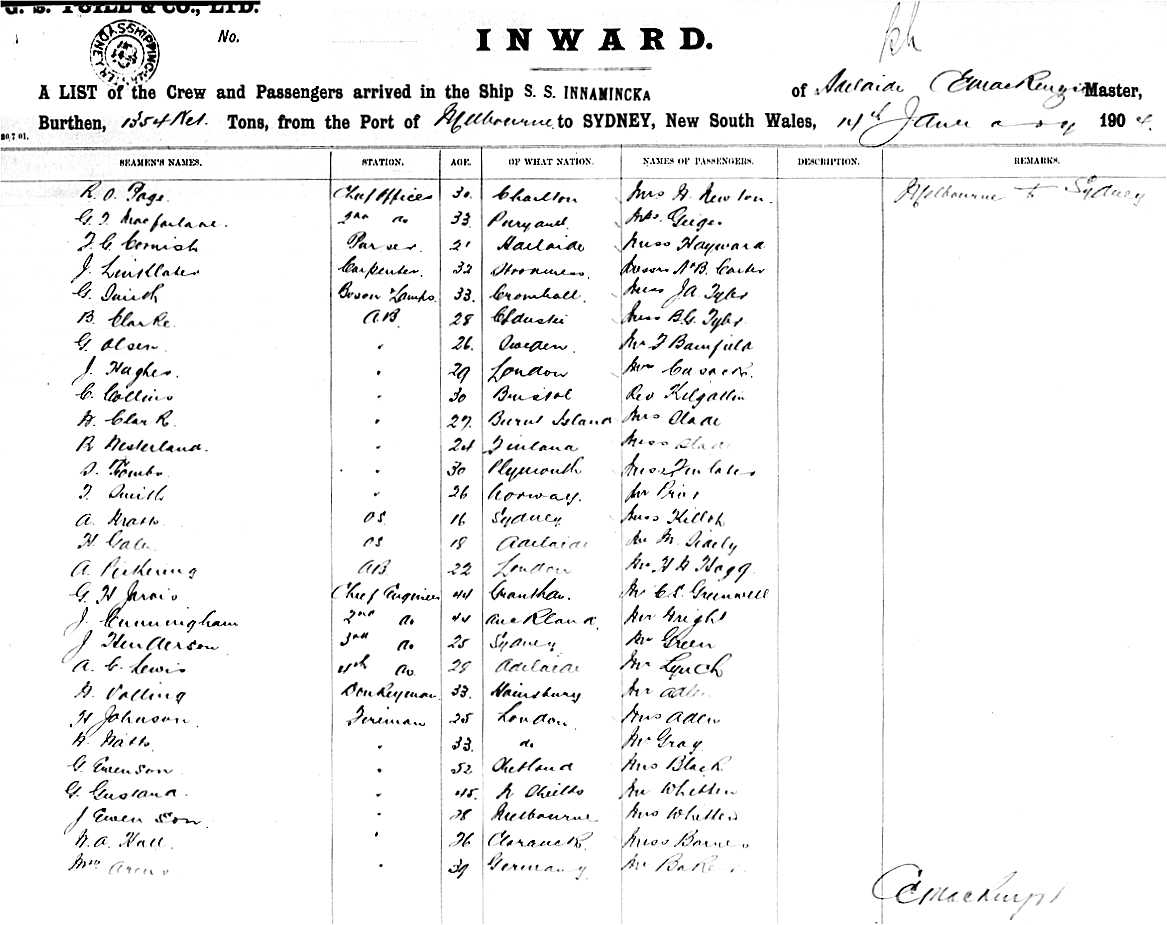 G. S. YUILL & CO., LTD.
No.
INWARD.
SHIPPING SYDNEY
A LIST of the Crew and Passengers arrived in the Ship S. S. INNAMINCKA of Adelaide C Mackenzie Master,
Burthen, 1354 Net. Tons, from the Port of Melbourne to SYDNEY, New South Wales, 14th January 1904.
SEAMEN'S NAMES. STATION. AGE. OF WHAT NATION. NAMES OF PASSENGERS. DESCRIPTION. REMARKS.
R. O. Page Chief Officer 30 Charlton Mrs H. Newton Melbourne to Sydney
G. T. Macfarlane 2nd do 33 Mrs Geiger
F. C. Cornish Purser 21 Adelaide Miss Hayward
J. Linklater Carpenter 32 Stromness
G. Smith Bosun & Lamps 33 Cromhall Miss J A Tyler
B. Clarke AB 28 Miss B. G. Tyler
G. Olsen " 26 Sweden Mr F Bamfield
J. Hughes " 29 London Mrs Cusack
C. Collins " 30 Bristol Rev Kilgallin
H. Clark " 27 Burnt Island Mrs Slade
R Westerland " 24 Finland Miss Slade
T. Tombs " 30 Plymouth Miss Finlater
T. Smith " 26 Norway Mr Prior
A. Watts OS 16 Sydney Miss
H Gale OS 18 Adelaide Mr M.
A. Pickering AB 22 London Mr H H Hagg
G. H Jarvis Chief Engineer 44 Grantham Mr C S Greenwell
J. Cunningham 2nd do 44 Auckland Mr Wright
J Henderson 3rd do 25 Sydney Mr Green
A. C. Lewis 4th do 28 Adelaide Mr Lynch
H. Volling Donkeyman 33 Hainsbury Mr Aden
H Johnson Fireman 25 London Mrs Aden
W. Watts " 33 do Mr Gray
G. Evenson " 52 Shetland Mrs Black
G. " 45 N Shields Mr Whetten
J Evenson " 28 Melbourne Mrs Whetten
W. A. Hall " 26 Miss Barnes
Wm Arens " 39 Germany Mr Baker
C Mackenzie